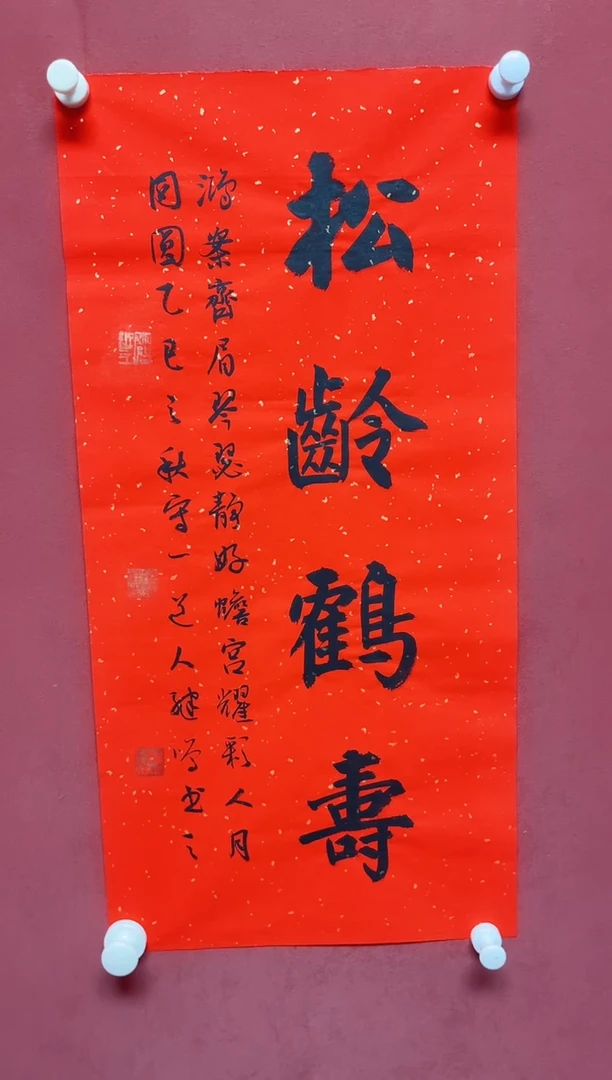 松齡鶴壽
鴻案齊眉琴瑟靜好蟾宮耀彩人月
同圓乙巳之秋守一道人継鳴书之